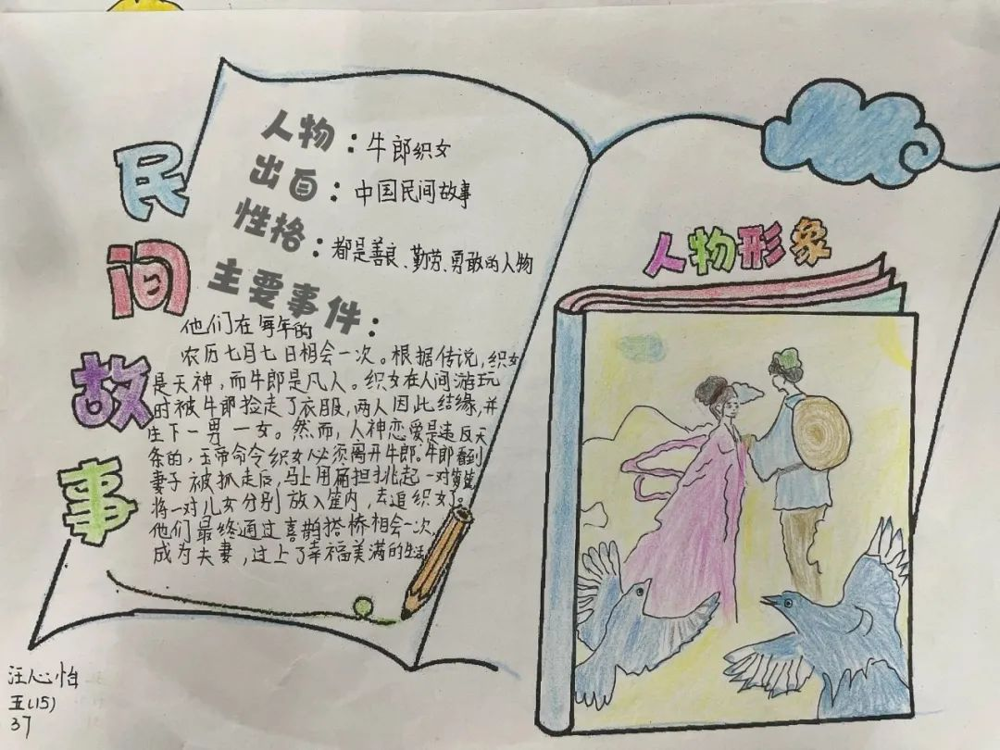 民间故事
人物：牛郎织女
出自：中国民间故事
性格：都是善良、勤劳、勇敢的人物
主要事件：
他们在每年的
农历七月七日相会一次。根据传说，织女
是天神，而牛郎是凡人。织女在人间游玩
时被牛郎捡走了衣服，两人因此结缘，并
生下一男一女。然而，人神恋爱是违反天
条的，玉帝命令织女必须离开牛郎。牛郎看到
妻子被抓走后，马上用扁担挑起一对箩筐
将一对儿女分别放入筐内，去追织女。
他们最终通过喜鹊搭桥相会一次，
成为夫妻，过上了幸福美满的生活
人物形象
汪心怡
五(15)
37